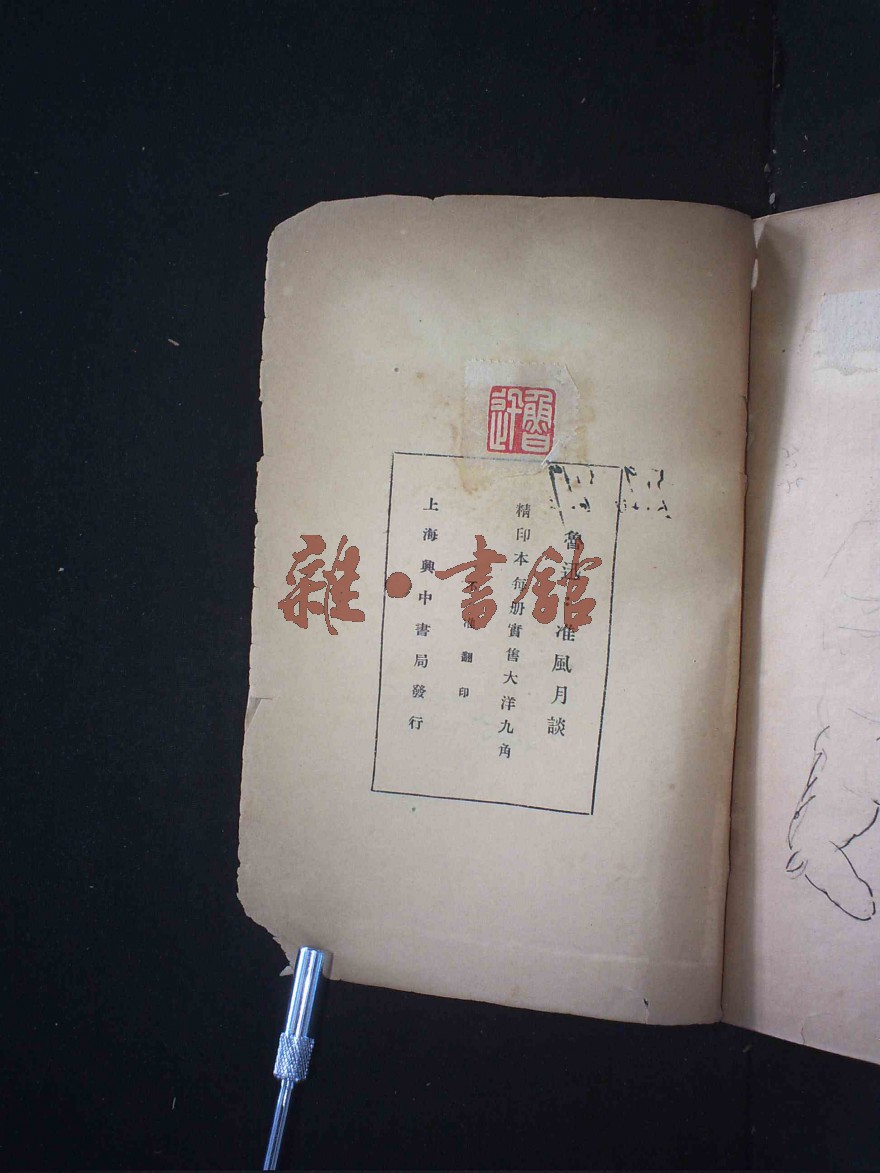 魯迅
魯迅：准風月談
精印本每册實售大洋九角
不准翻印
上海興中書局發行
雜·書館